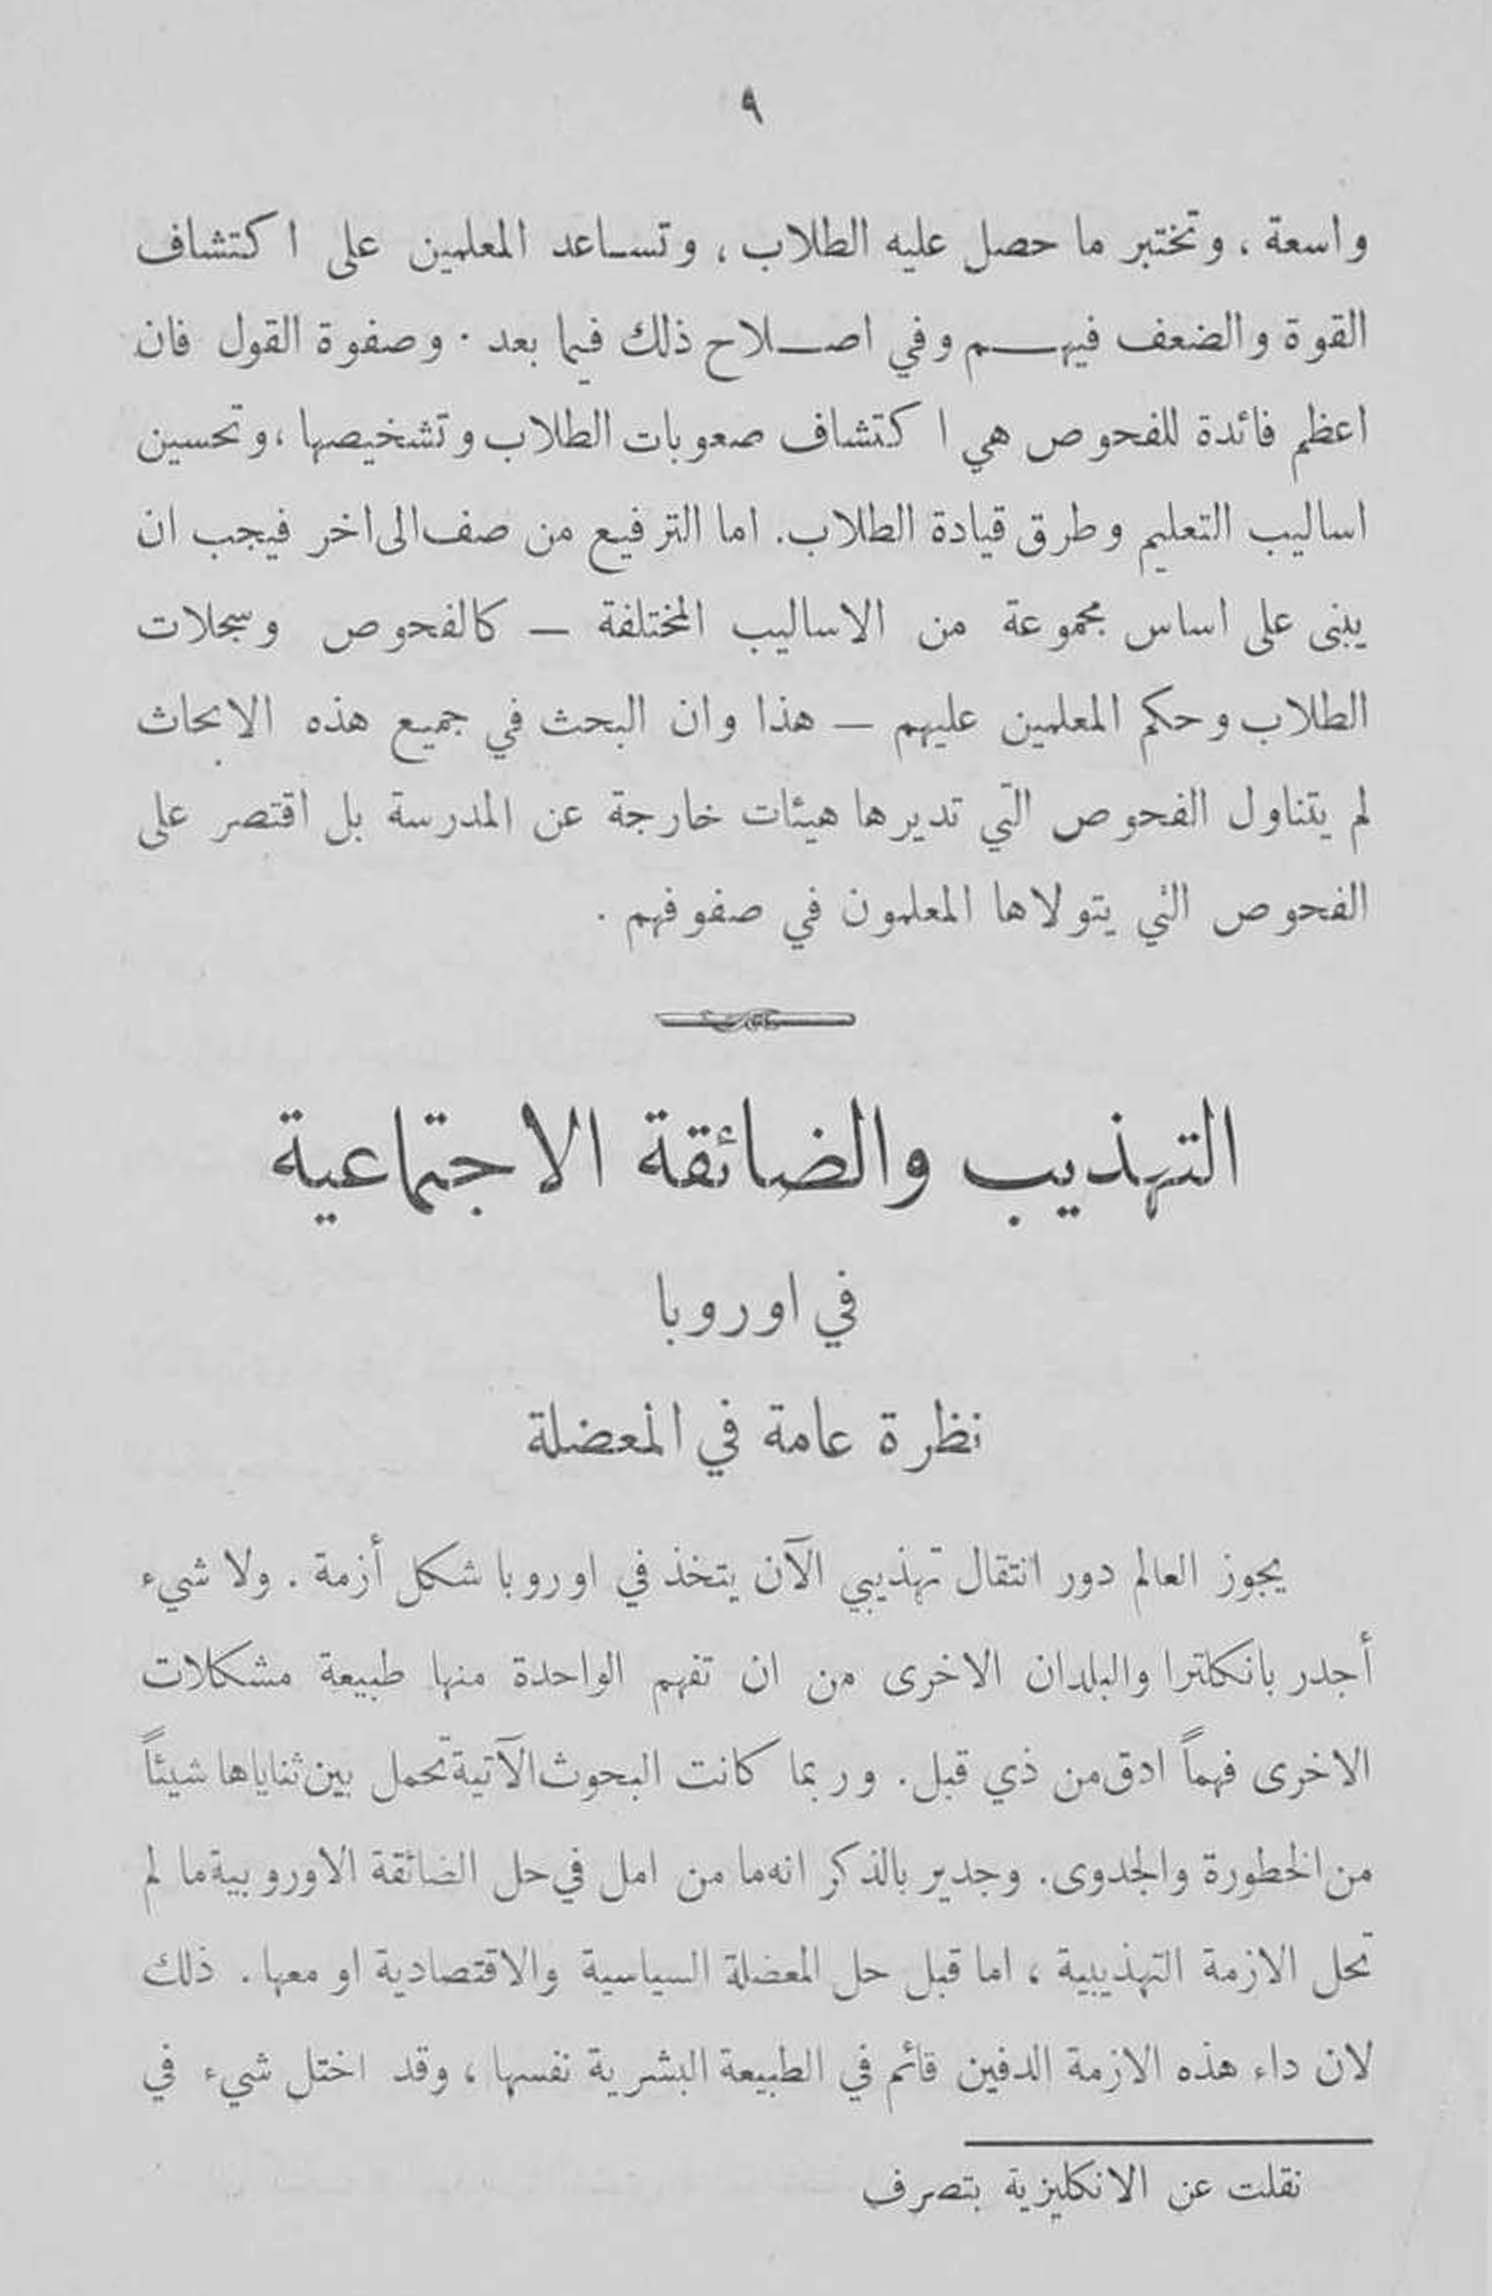 ٩
واسعة ، وتختبر ما حصل عليه الطلاب ، وتساعد المعلمين على اكتشاف
القوة والضعف فيهم وفي اصلاح ذلك فيما بعد . وصفوة القول فان
اعظم فائدة للفحوص هي اكتشاف صعوبات الطلاب وتشخيصها ، وتحسين
اساليب التعليم وطرق قيادة الطلاب. اما الترفيع من صف الى اخر فيجب ان
يبنى على اساس مجموعة من الاساليب المختلفة — كالفحوص وسجلات
الطلاب وحكم المعلمين عليهم — هذا وان البحث في جميع هذه الابحاث
لم يتناول الفحوص التي تديرها هيئات خارجة عن المدرسة بل اقتصر على
الفحوص التي يتولاها المعلمون في صفوفهم .
التهذيب والضائقة الاجتماعية
في اوروبا
نظرة عامة في المعضلة
يجوز العالم دور انتقال تهذيبي الآن يتخذ في اوروبا شكل أزمة . ولا شيء
أجدر بانكلترا والبلدان الاخرى من ان تفهم الواحدة منها طبيعة مشكلات
الاخرى فهماً ادق من ذي قبل . وربما كانت البحوث الآتية تحمل بين ثناياها شيئاً
من الخطورة والجدوى. وجدير بالذكر انه ما من امل في حل الضائقة الاوروبية ما لم
تحل الازمة التهذيبية ، اما قبل حل المعضلة السياسية والاقتصادية او معها . ذلك
لان داء هذه الازمة الدفين قائم في الطبيعة البشرية نفسها ، وقد اختل شيء في
نقلت عن الانكليزية بتصرف